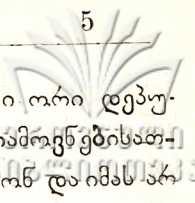 5
ი ორი დეპუ-
იამოვნებისათ-
ონ და იმას არ